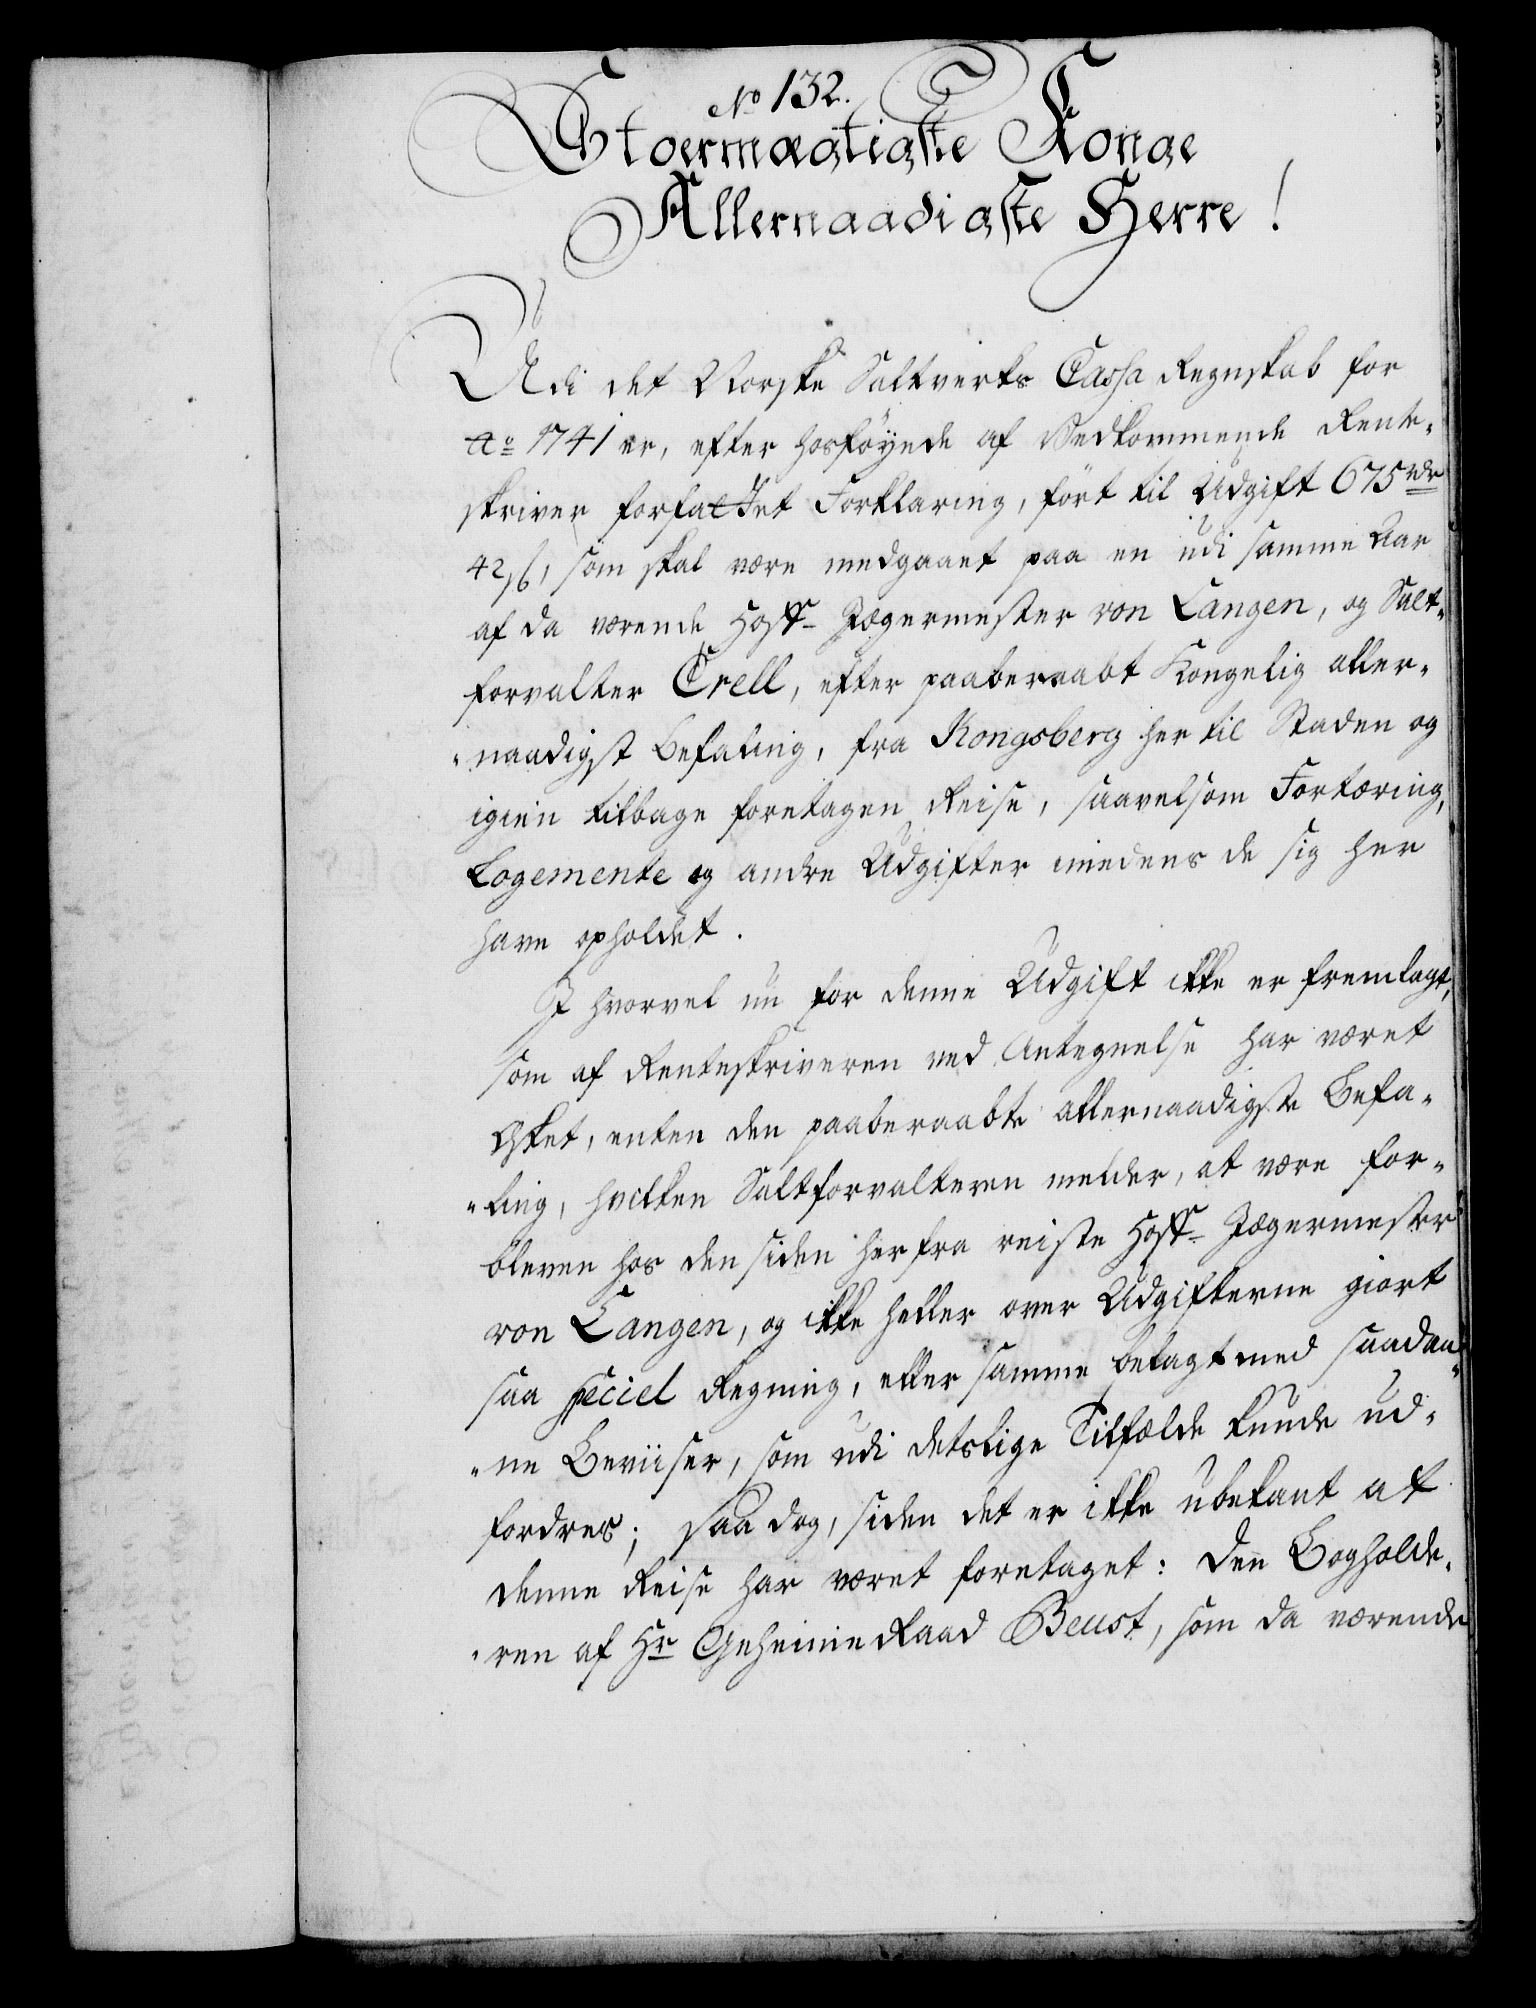 No 132.
Stoermægtigste Konge
Allernaadigste Herre!
Udi det Norske Saltverks Cassa Regnskab for
Ao 1741 er, efter hosföyede af Vedkommende Rente-
skriver forfattet Forklaring, fört til Udgift 675 rdr
42 ß, som skal være medgaaet paa en udi samme Aar
af da værende Hoff-Jægermester von Langen, og Salt-
forvalter Crell, efter paaberaabt Kongelig aller-
-naadigst Befaling, fra Kongsberg her til Staden og
igien tilbage foretagen Reise, saavelsom Fortæring,
Logemente og andre Udgifter imedens de sig her
have opholdet.
I hvorvel nu for denne Udgift ikke er fremlagt,
som af Renteskriveren ved Antegnelse har været
Æsket, enten den paaberaabte allernaadigste Befa-
-ling, hvilken Saltforvalteren melder, at være for-
bleven hos den siden herfra reiste Hoff-Jægermester
von Langen, og ikke heller over Udgifterne giort
saa speciel Regning, eller samme belagt med saadan-
-ne Beviiser, som udi deslige Tilfælde kunde ud-
fordres; saa dog, siden det er ikke ubekant at
denne Reise har været foretaget: Den Bogholde-
-ren af Hr Geheime Raad Beust, som da værende